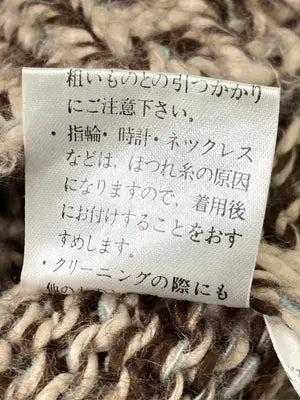 粗いものとの引つかかり
にご注意下さい。
・指輪・時計・ネックレス
などは、ほつれ糸の原因
になりますので、着用後
にお付けすることをおす
すめします。
・クリーニングの際にも